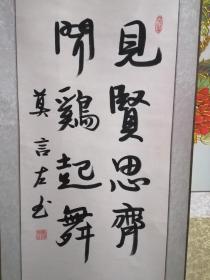 見賢思齊
聞鷄起舞
莫言左书